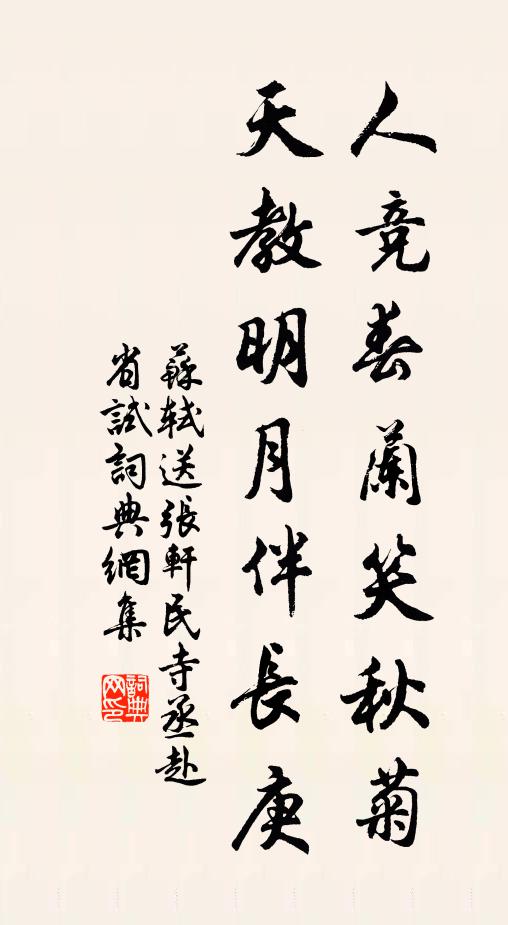 人競春蘭笑秋菊
天教明月伴長庚
蘇軾送張軒民寺丞赴
省試詞典網集
詞典网印